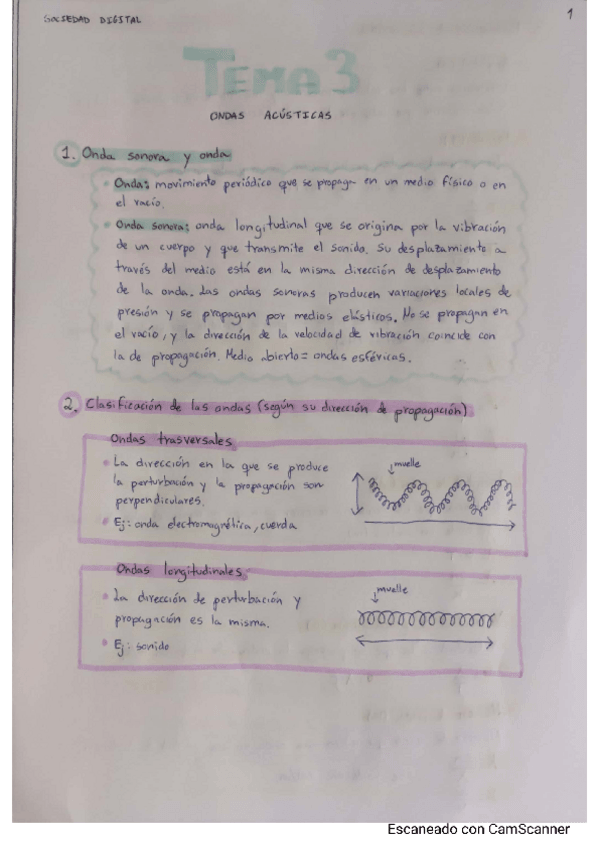 SOCIEDAD DIGITAL
1
TEMA 3
ONDAS ACÚSTICAS
1. Onda sonora y onda
• Onda: movimiento periódico que se propaga en un medio físico o en
el vacío.
• Onda sonora: onda longitudinal que se origina por la vibración
de un cuerpo y que transmite el sonido. Su desplazamiento a
través del medio está en la misma dirección de desplazamiento
de la onda. Las ondas sonoras producen variaciones locales de
presión y se propagan por medios elásticos. No se propagan en
el vacío, y la dirección de la velocidad de vibración coincide con
la de propagación. Medio abierto = ondas esféricas.
2. Clasificación de las ondas (según su dirección de propagación)
Ondas trasversales
• La dirección en la que se produce
la perturbación y la propagación son
perpendiculares.
• Ej: onda electromagnética, cuerda
muelle
Ondas longitudinales
• La dirección de perturbación y
propagación es la misma.
• Ej: sonido
muelle
Escaneado con CamScanner